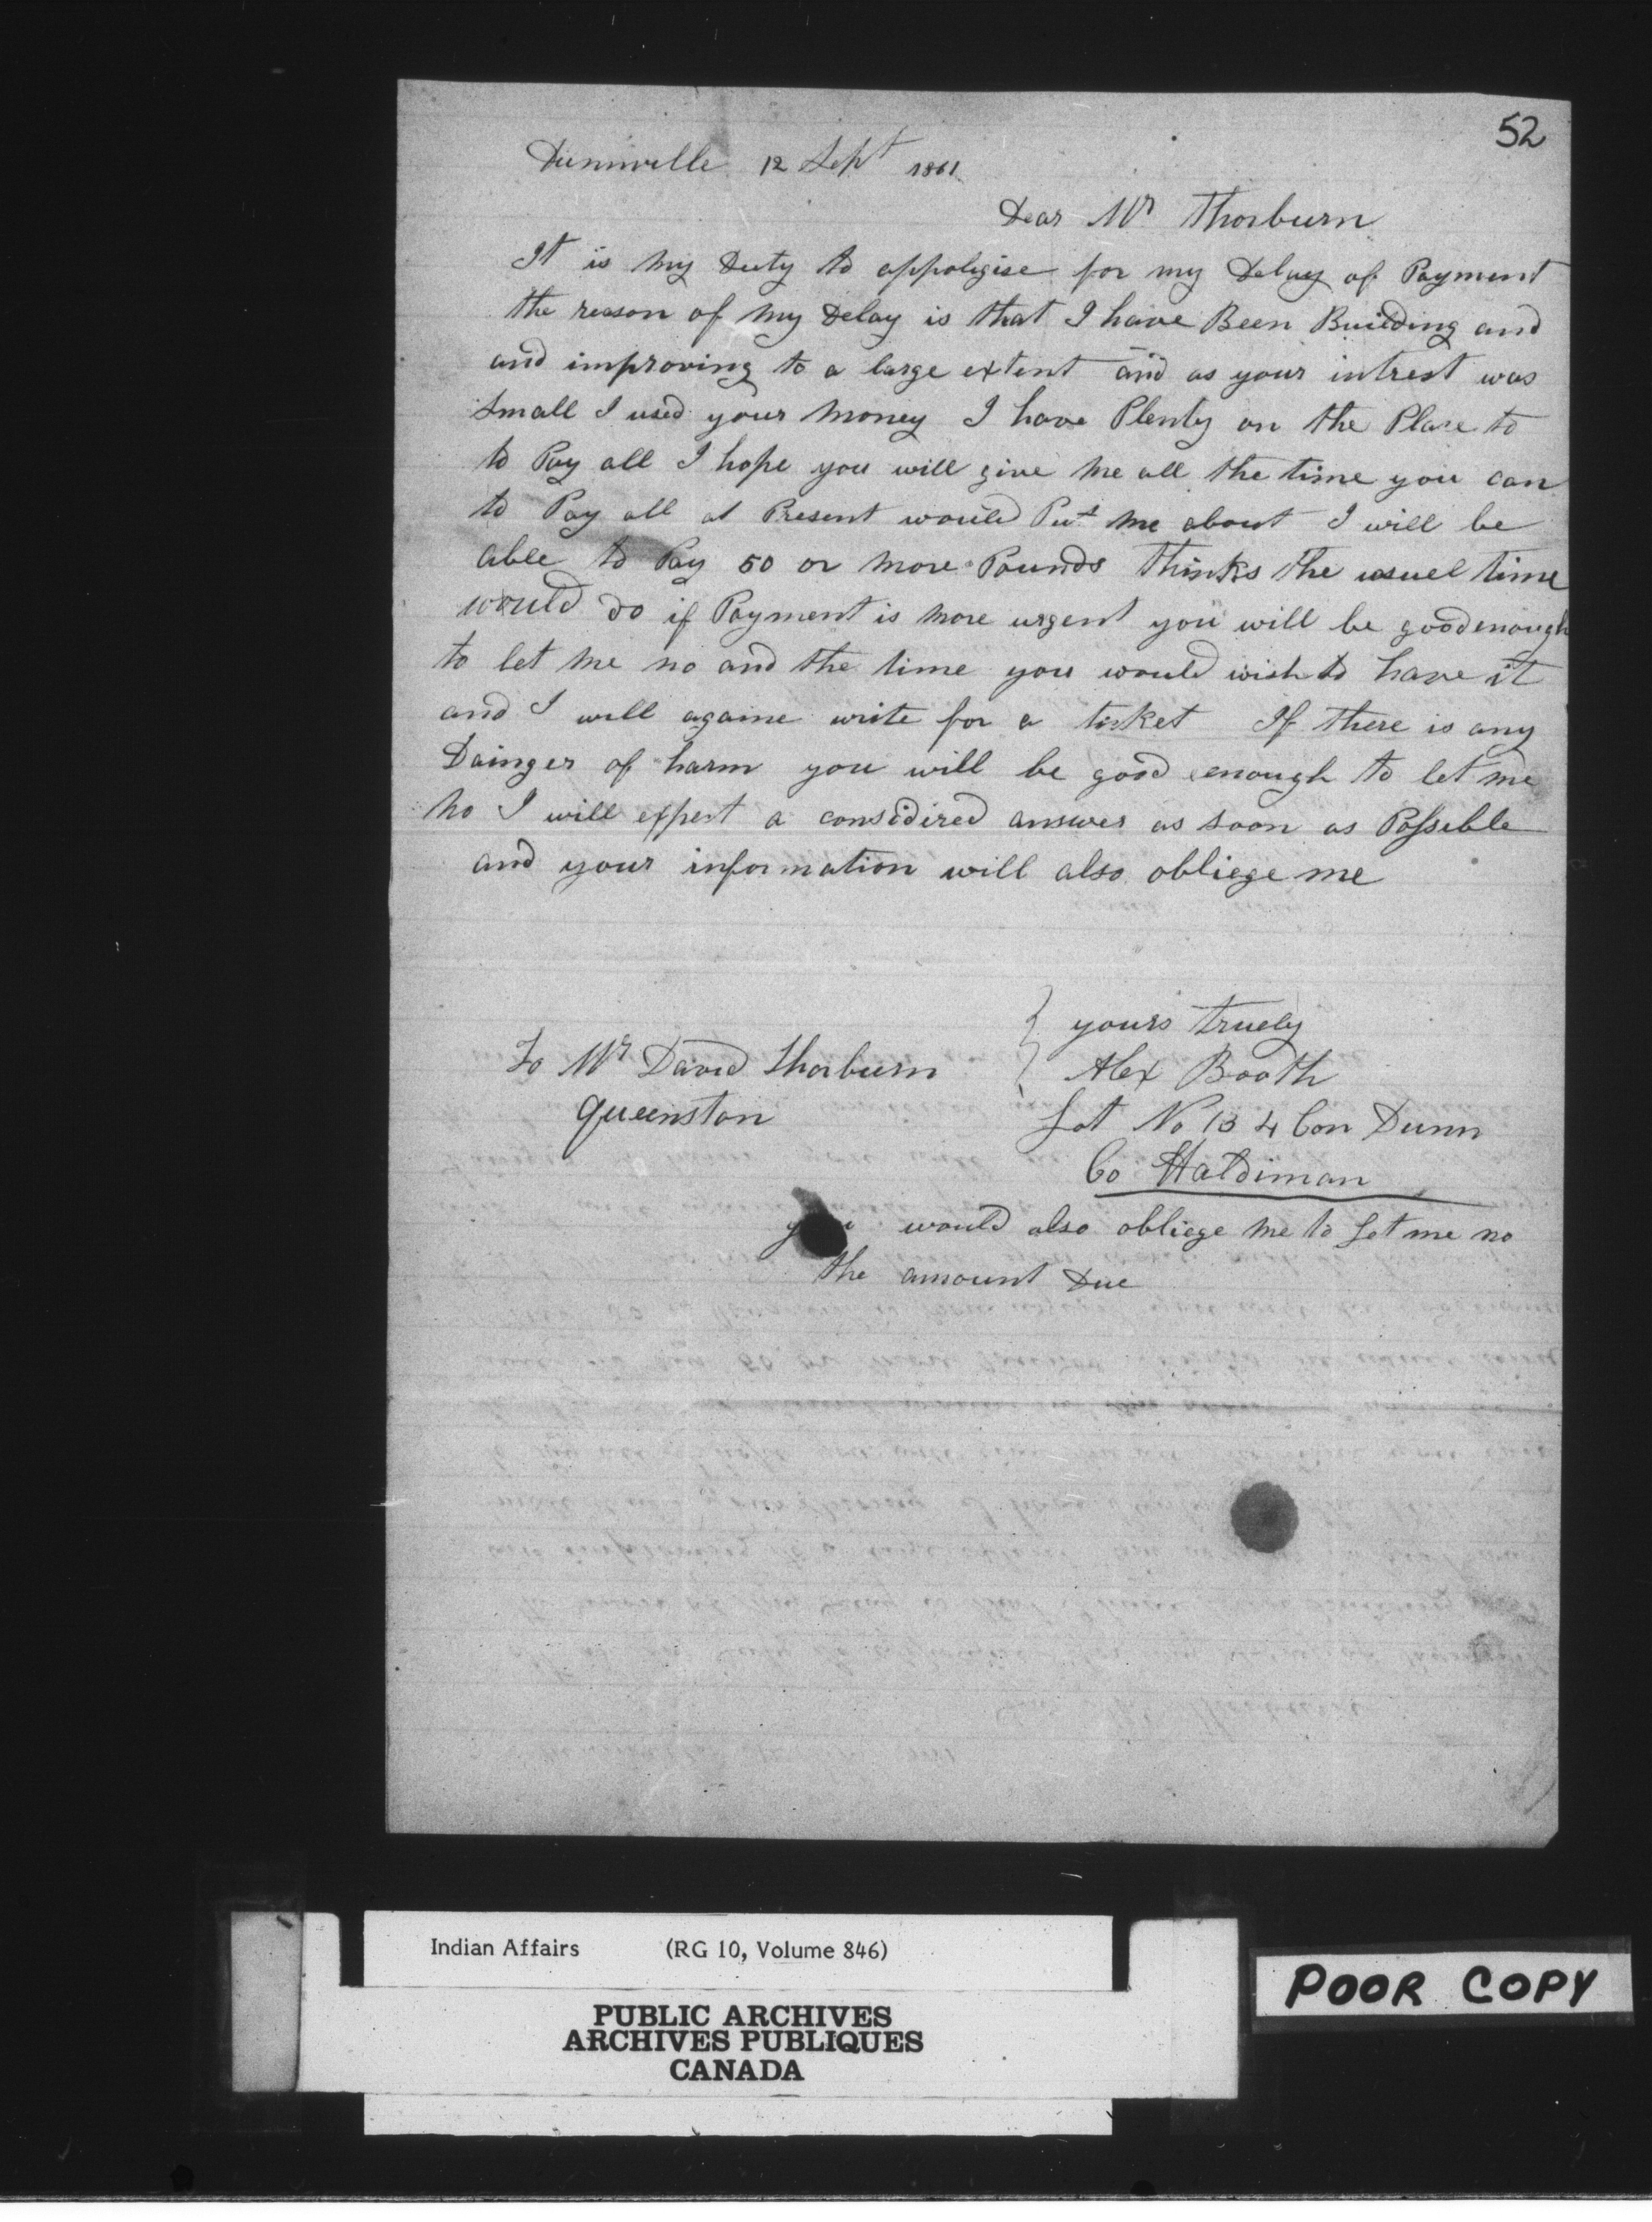 52
Dunnville 12 Sept 1861
Dear Mr Thorburn
It is my Duty to appoligise for my Delay of Payment
the reason of my Delay is that I have Been Building and
and improving to a large extent and as your intrest was
Small I used your money I have Plenty on the Place to
to Pay all I hope you will give me all the time you can
to Pay all at Present would Put me about I will be
able to Pay 50 or more Pounds thinks the usuel time
would do if Payment is more urgent you will be good enough
to let me no and the time you would wish to have it
and I will againe write for a ticket If there is any
Dainger of harm you will be good enough to let me
no I will expect a considired answer as soon as Possible
and your information will also obliege me
yours truely
To Mr David Thorburn
Alex Booth
Queenston
Lot No 13 4 Con Dunn
Co Haldiman
you would also obliege me to Let me no
the amount Due
Indian Affairs (RG 10, Volume 846)
PUBLIC ARCHIVES
ARCHIVES PUBLIQUES
CANADA
POOR COPY